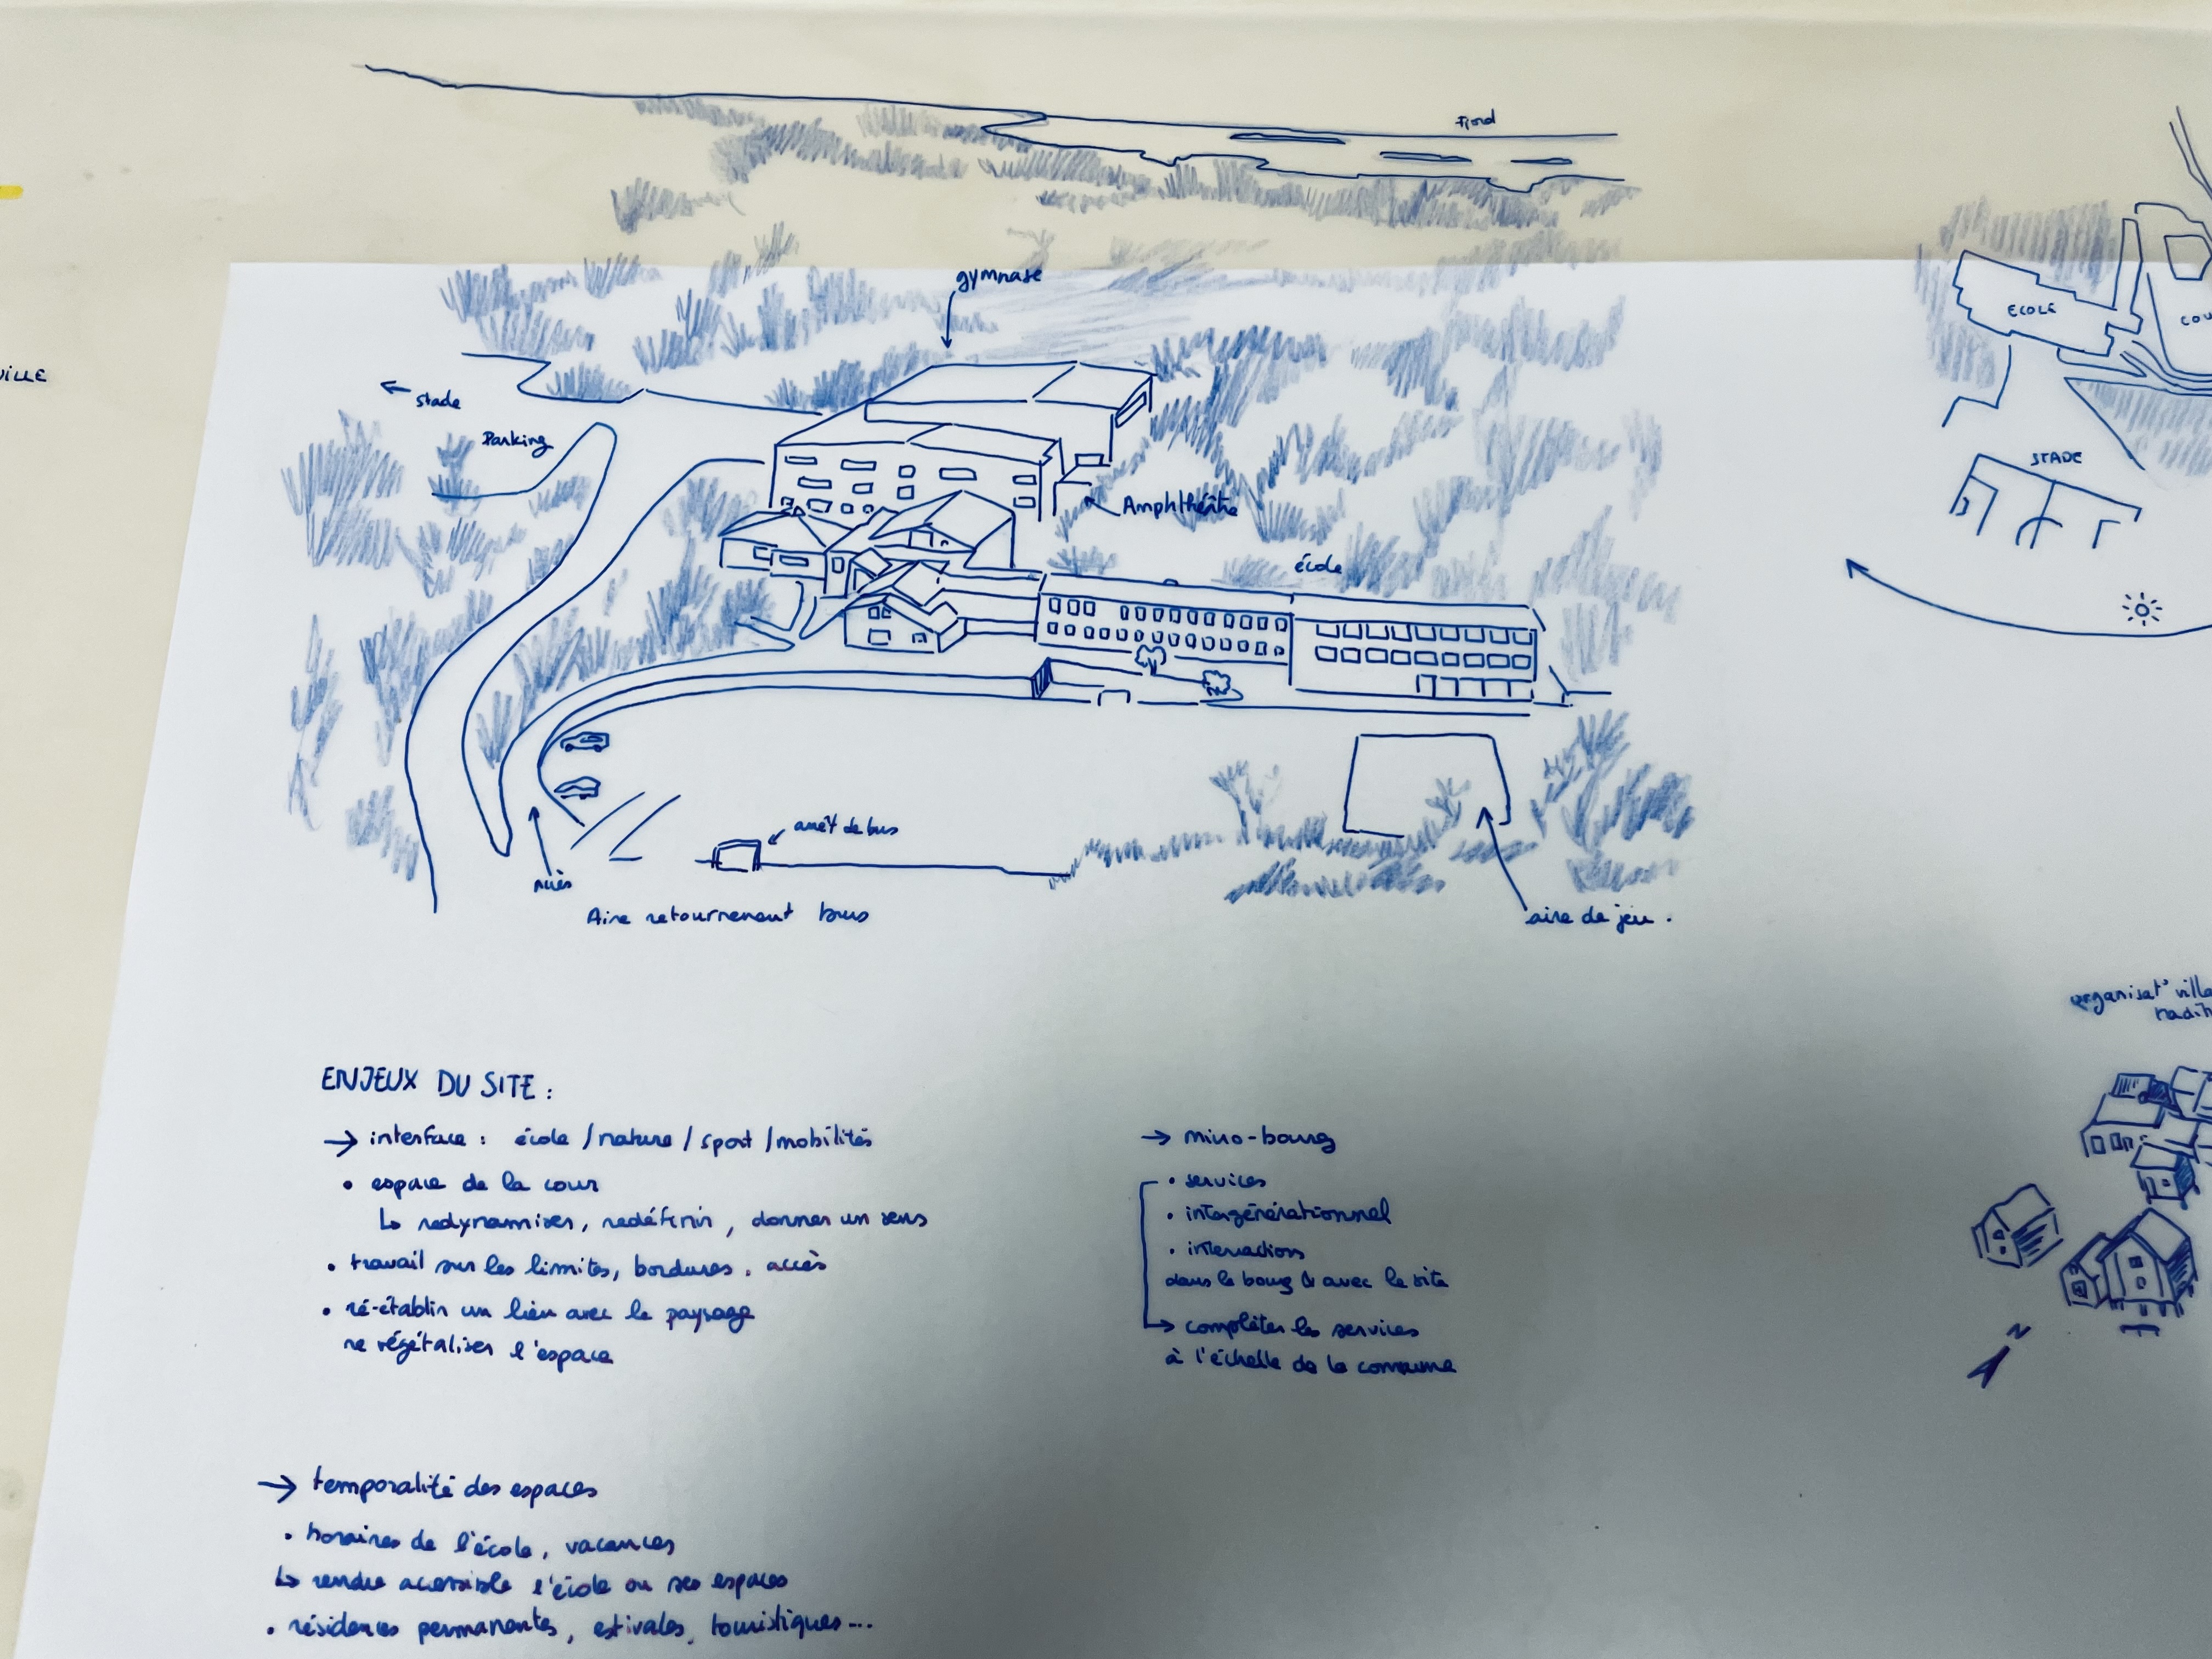 Fjord
gymnase
ECOLE
COU
VILLE
← stade
Parking
STADE
Amphthéâtre
école
arrêt de bus
Aire retournement bus
aire de jeu.
organisat° villa
tradit
ENJEUX DU SITE :
→ interface : école / nature / sport / mobilités
• espace de la cour
↳ redynamiser, redéfinir, donner un sens
• travail sur les limites, bordures, accès
• ré-établir un lien avec le paysage
re végétaliser l'espace
→ micro-bourg
• services
• intergénérationnel
• interactions
dans le bourg & avec le site
→ compléter les services
à l'échelle de la commune
N
→ temporalité des espaces
• horaires de l'école, vacances
↳ rendre accessible l'école ou ses espaces
• résidences permanentes, estivales, touristiques...